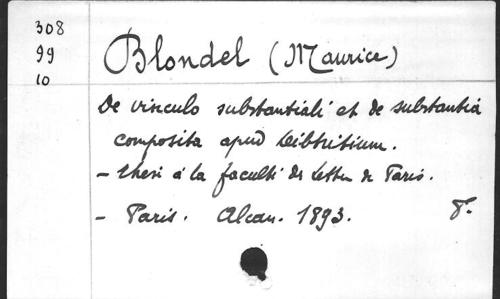 308
99
10
Blondel (Maurice)
De vinculo substantiali et de substantia
composita apud Leibnitium.
- thesi à la faculté des lettres de Paris.
- Paris. Alcan. 1893. 8°.